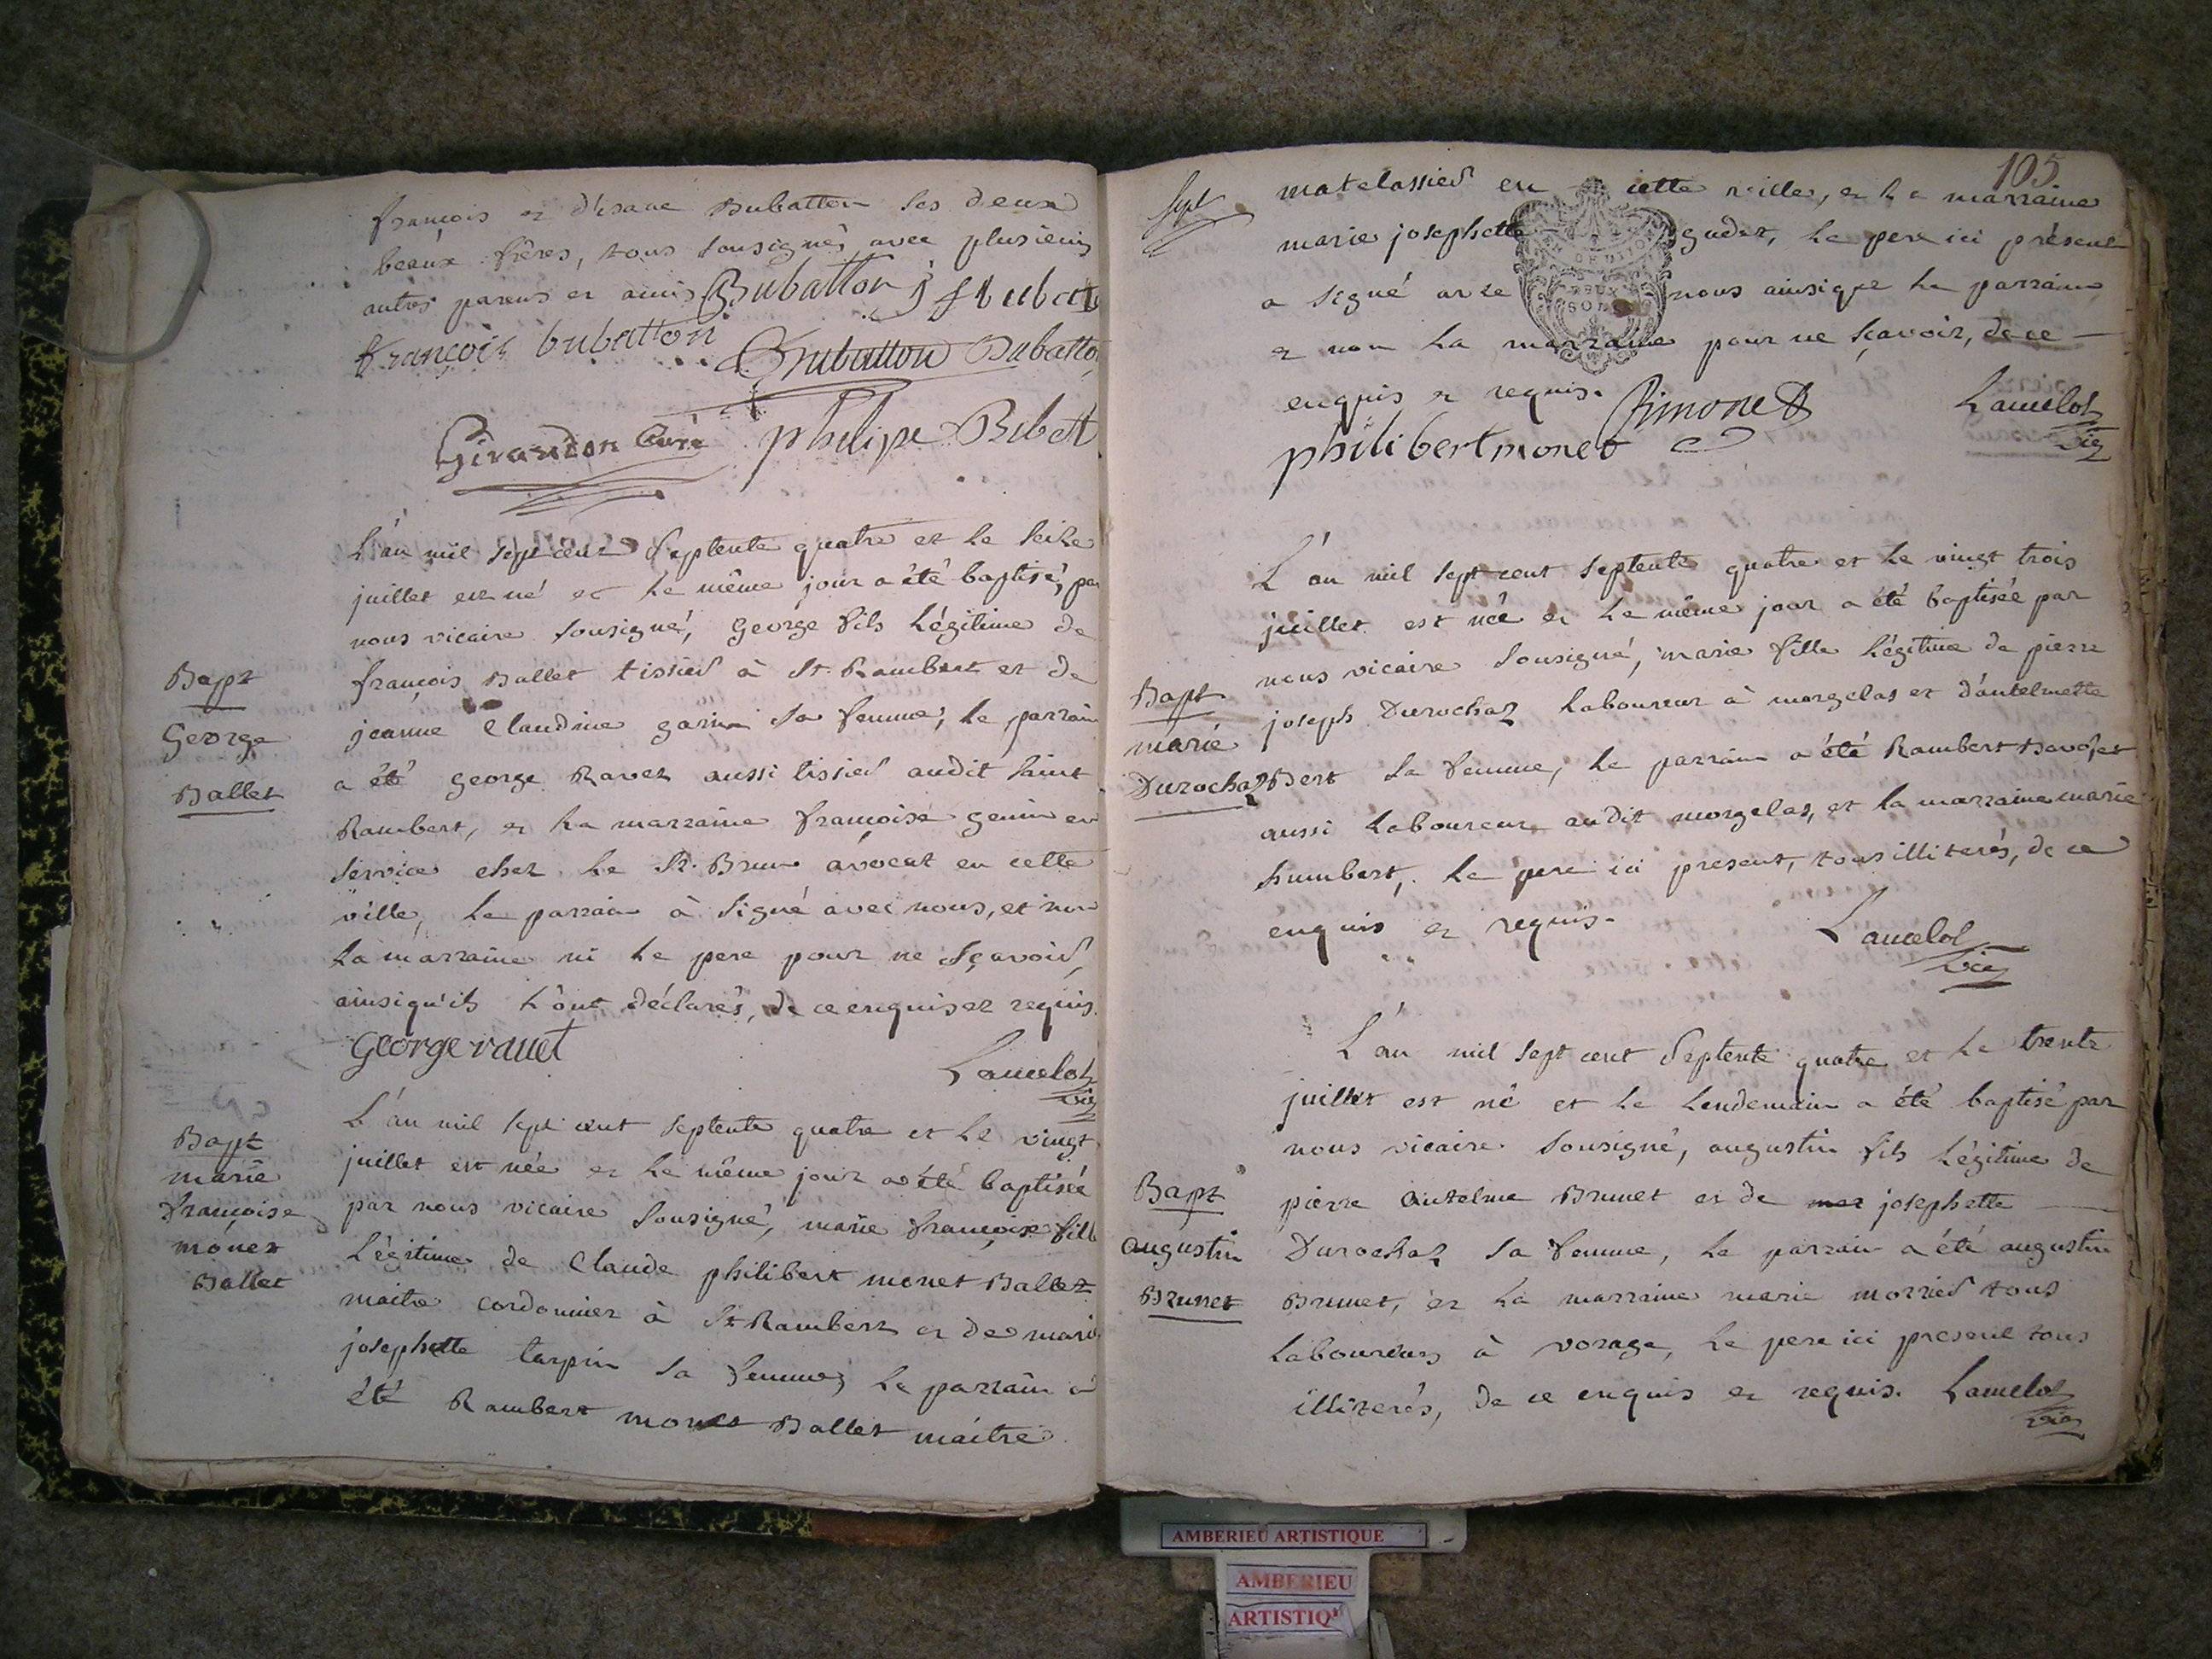 françois et d'esaue Bubatton ses deux
beaux frères, tous sousignés avec plusieurs
autres parens et amis Bubatton
françois bubatton Bubatton Dubatto
Girandon Curé philipe Bibet
L'an mil sept cent septente quatre et le seize
juillet est né et le même jour a été baptisé, par
nous vicaire sousigné, George fils légitime de
Bapt
George
Ballet
françois Ballet tissier à St. Rambert et de
jeanne Claudine garin sa femme, le parrain
a été george Ravet aussi tissier audit saint
Rambert, et la marraine françoise genin en
service chez le Sr. Brun avocat en cette
ville, le parrain à signé avec nous, et non
la marraine ni le pere pour ne sçavoir,
ainsiqu'ils l'ont déclarés, de ce enquis et requis.
George ravet
Lancelot
vic
L'an mil sept cent septente quatre et le vingt
juillet est née et le même jour a été baptisée
par nous vicaire sousigné, marie françoise fille
Bapt
marie
françoise
monet
Ballet
légitime de Claude philibert monet Ballet
maitre cordonnier à St Rambert et de marie
josephette tarpin sa femme, le parrain a
été Rambert monet Ballet maitre
105
Sept
matelassier en cette ville, et la marraine
marie josephette gudet, le pere ici présent
a signé avec nous ainsique le parrain
DEUX
SOLS
et non la marraine pour ne sçavoir, de ce
enquis et requis. Rimonet Lancelot
vic
philibert monet
L'an mil sept cent septente quatre et le vingt trois
juillet est née et le même jour a été baptisée par
nous vicaire sousigné, marie fille légitime de pierre
Bapt
marie
Durochaz
joseph Durochaz laboureur à morgelas et d'antelmette
Bert sa femme, le parrain a été Rambert
aussi laboureur audit morgelas, et la marraine marie
humbert, le pere ici present, tous illiterés, de ce
enquis et requis. Lancelot
vic
L'an mil sept cent septente quatre et le trente
juillet est né et le lendemain a été baptisé par
nous vicaire sousigné, augustin fils légitime de
Bapt
augustin
Brunet
pierre antelme Brunet et de mar josephette
Durochaz sa femme, le parrain a été augustin
Brunet, et la marraine marie morrier tous
laboureurs à vorage, le pere ici present tous
illiterés, de ce enquis et requis. Lancelot
vic
AMBERIEU ARTISTIQUE
AMBERIEU
ARTISTIQ